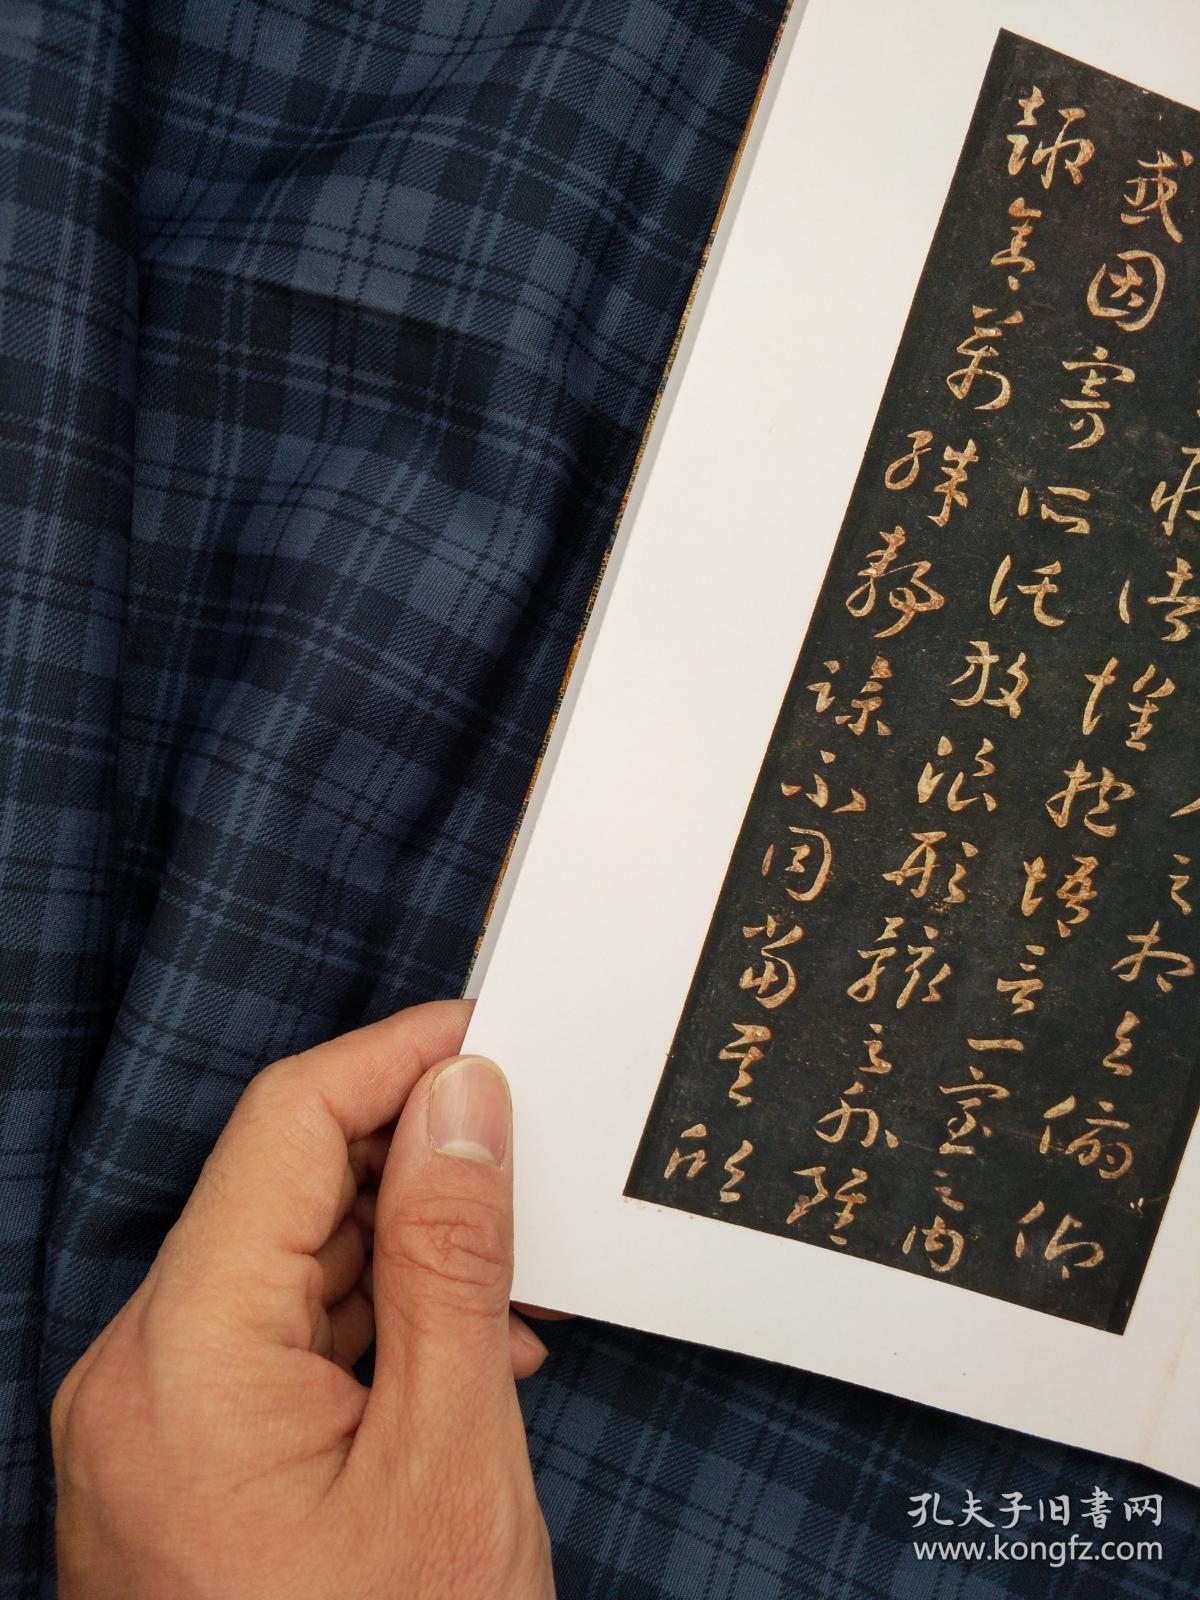 之相與俯仰
諸懷抱悟言一室之内
或因寄所託放浪形骸之外雖
趣舍萬殊静躁不同當其欣
孔夫子旧書网
www.kongfz.com